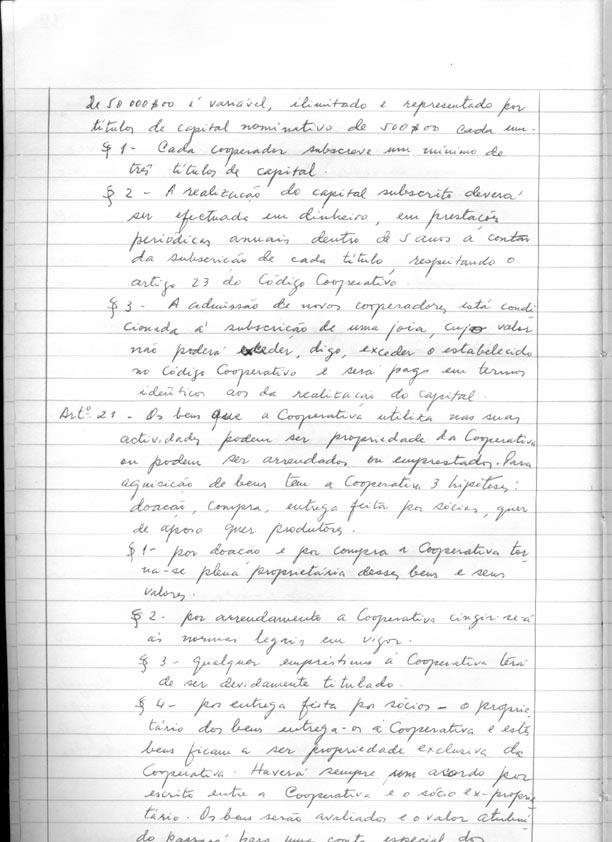 de 50 000$00 é variável, ilimitado e representado por
títulos de capital nominativo de 500$00 cada um.
§ 1 - Cada cooperador subscreve um mínimo de
três títulos de capital.
§ 2 - A realização do capital subscrito deverá
ser efectuada em dinheiro, em prestações
periódicas anuais dentro de 5 anos a contar
da subscrição de cada título respeitando o
artigo 23 do Código Cooperativo.
§ 3 - A admissão de novos cooperadores está condi-
cionada à subscrição de uma joia, cujo valor
não poderá exceder, digo, exceder o estabelecido
no Código Cooperativo e será pago em termos
idênticos aos da realização do capital.
Artº. 21 - Os bens que a Cooperativa utiliza nas suas
actividades podem ser propriedade da Cooperativa
ou podem ser arrendados ou emprestados. Para
aquisição de bens tem a Cooperativa 3 hipóteses:
doação, compra, entrega feita por sócios, quer
de apoio quer produtores.
§ 1 - por doação e por compra a Cooperativa tor-
na-se plena proprietária desses bens e seus
valores.
§ 2 - por arrendamento a Cooperativa cingir-se-á
às normas legais em vigor.
§ 3 - qualquer empréstimo à Cooperativa terá
de ser devidamente titulado.
§ 4 - por entrega feita por sócios - o proprie-
tário dos bens entrega-os à Cooperativa e estes
bens ficam a ser propriedade exclusiva da
Cooperativa. Haverá sempre um acordo por
escrito entre a Cooperativa e o sócio ex-proprie-
tário. Os bens serão avaliados e o valor atribuí-
do passará para uma conta especial dos